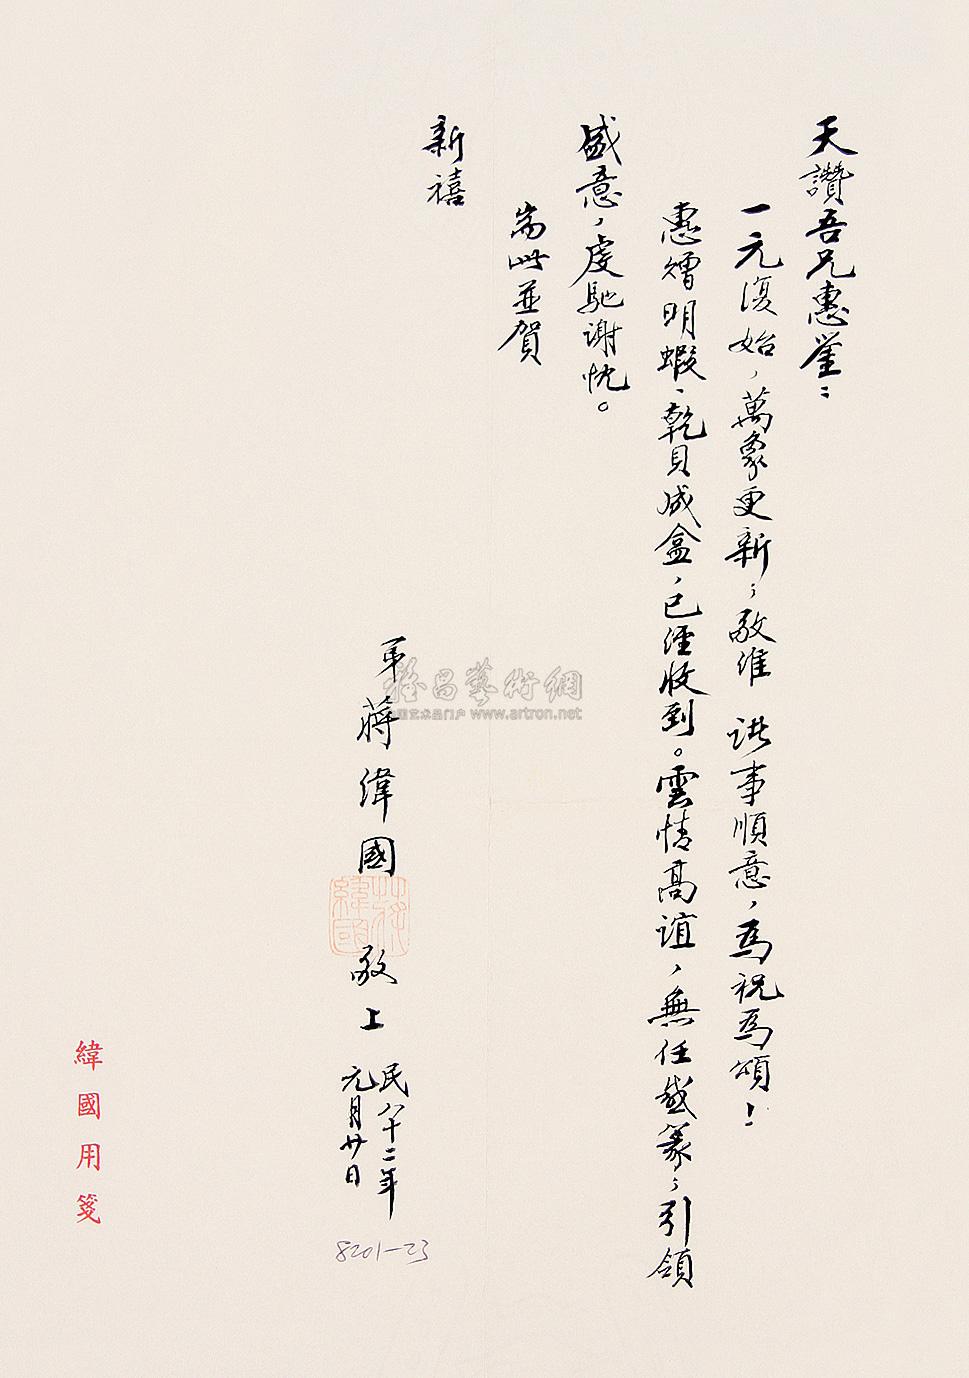 天讚吾兄惠鑒：
一元復始，萬象更新；敬維　諸事順意，為祝為頌！
惠贈明蝦、乾貝成盒，已經收到。雲情高誼，無任感篆；引領
盛意，虔馳謝忱。
耑此並賀
新禧
弟蔣緯國
蔣緯國
敬上
民八十二年
元月廿日
8201-23
緯國用箋
雅昌藝術網
中国艺术品门户 www.artron.net